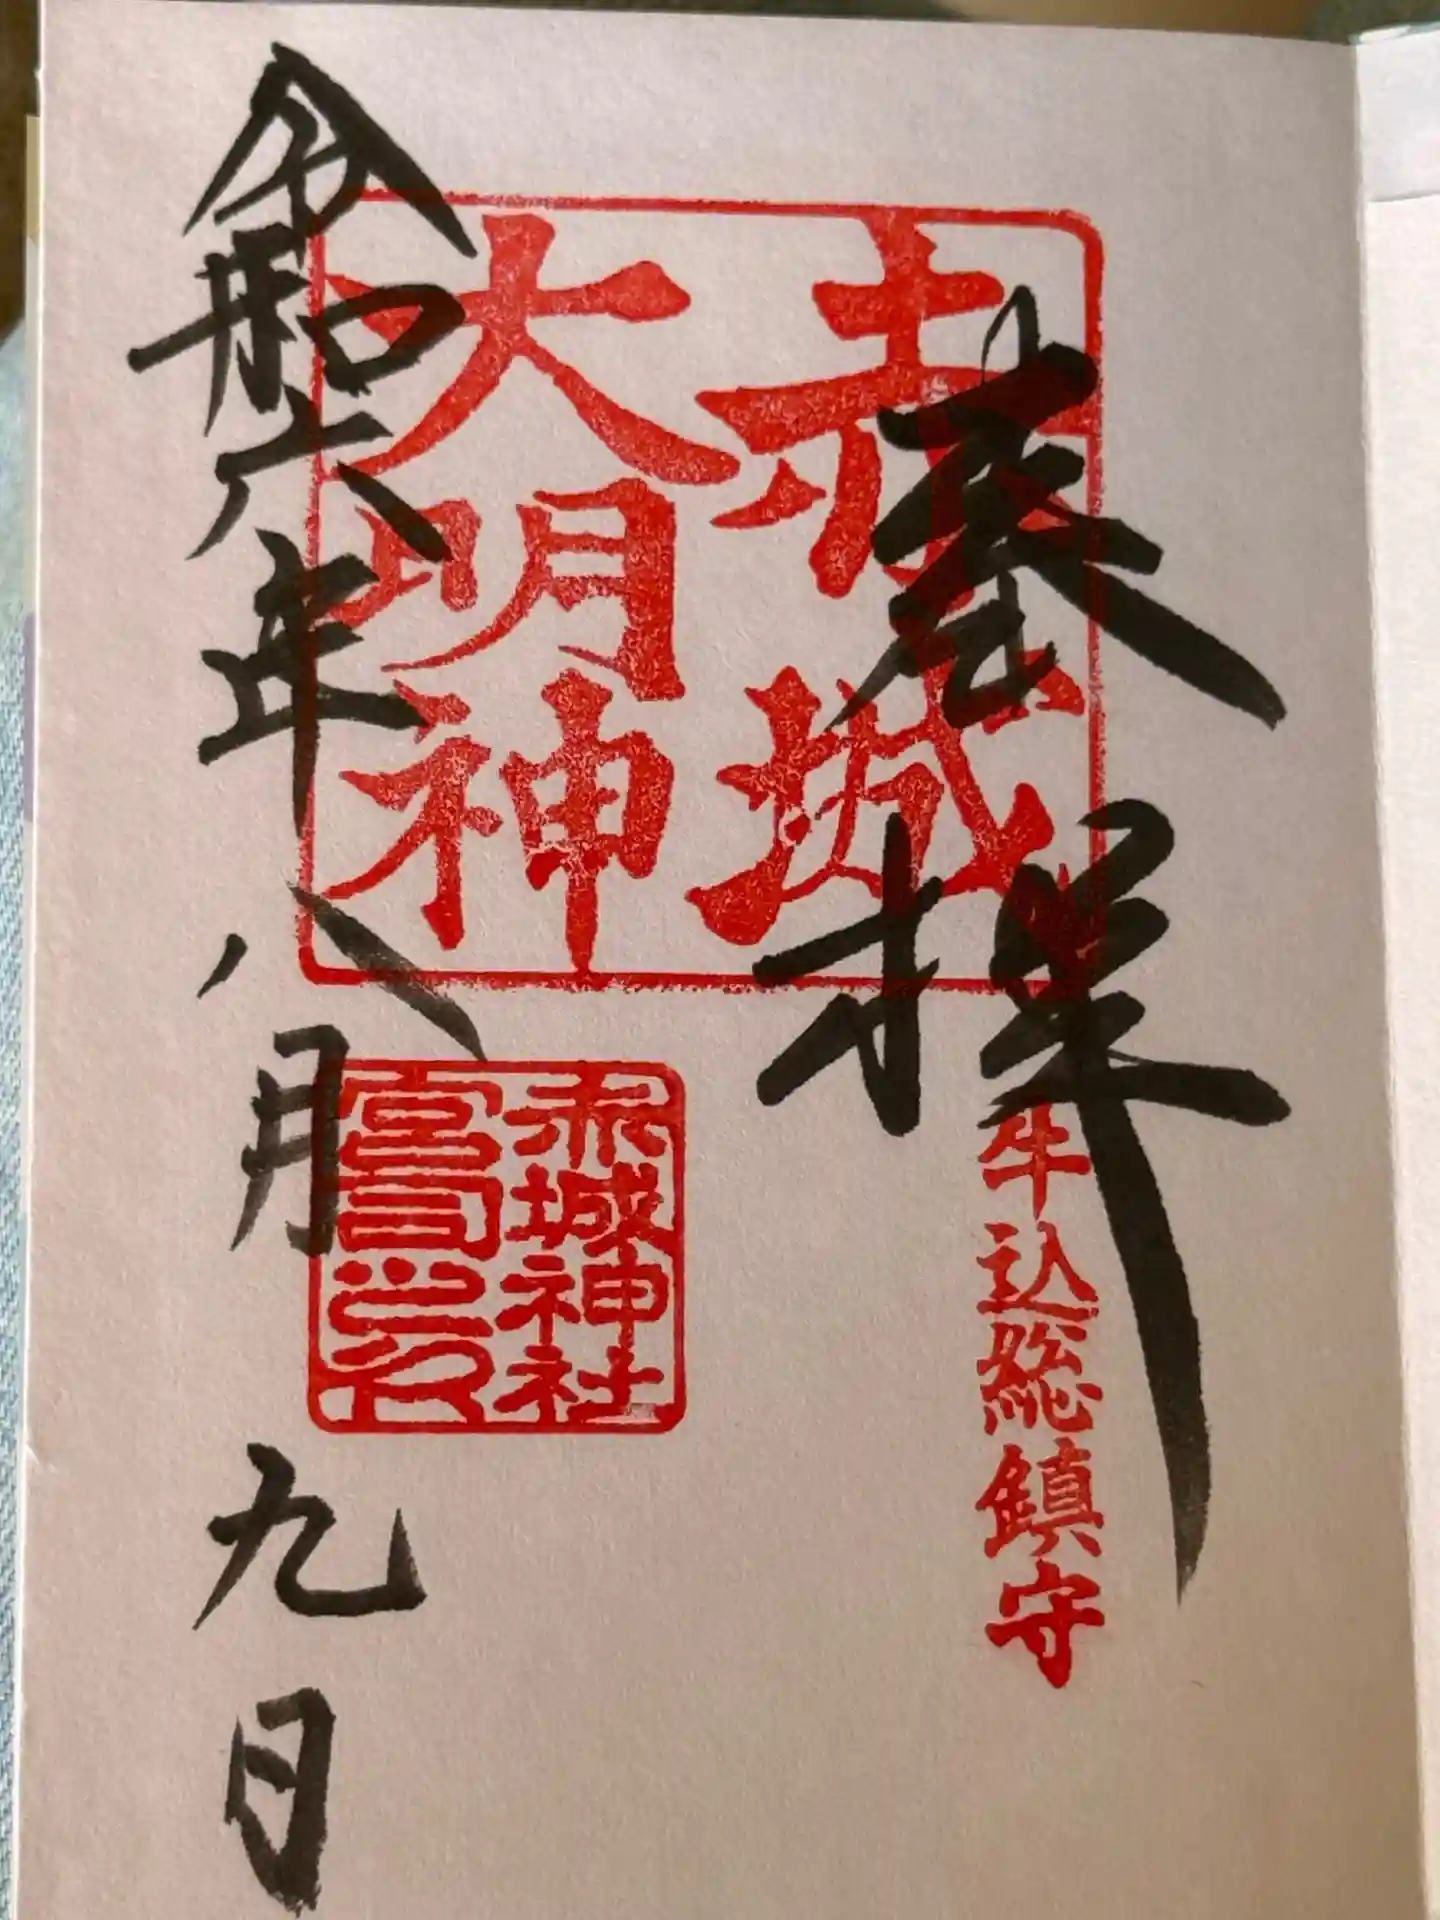 奉拝
赤城
大明神
牛込総鎮守
赤城神社
宮司之印
令和六年八月九日